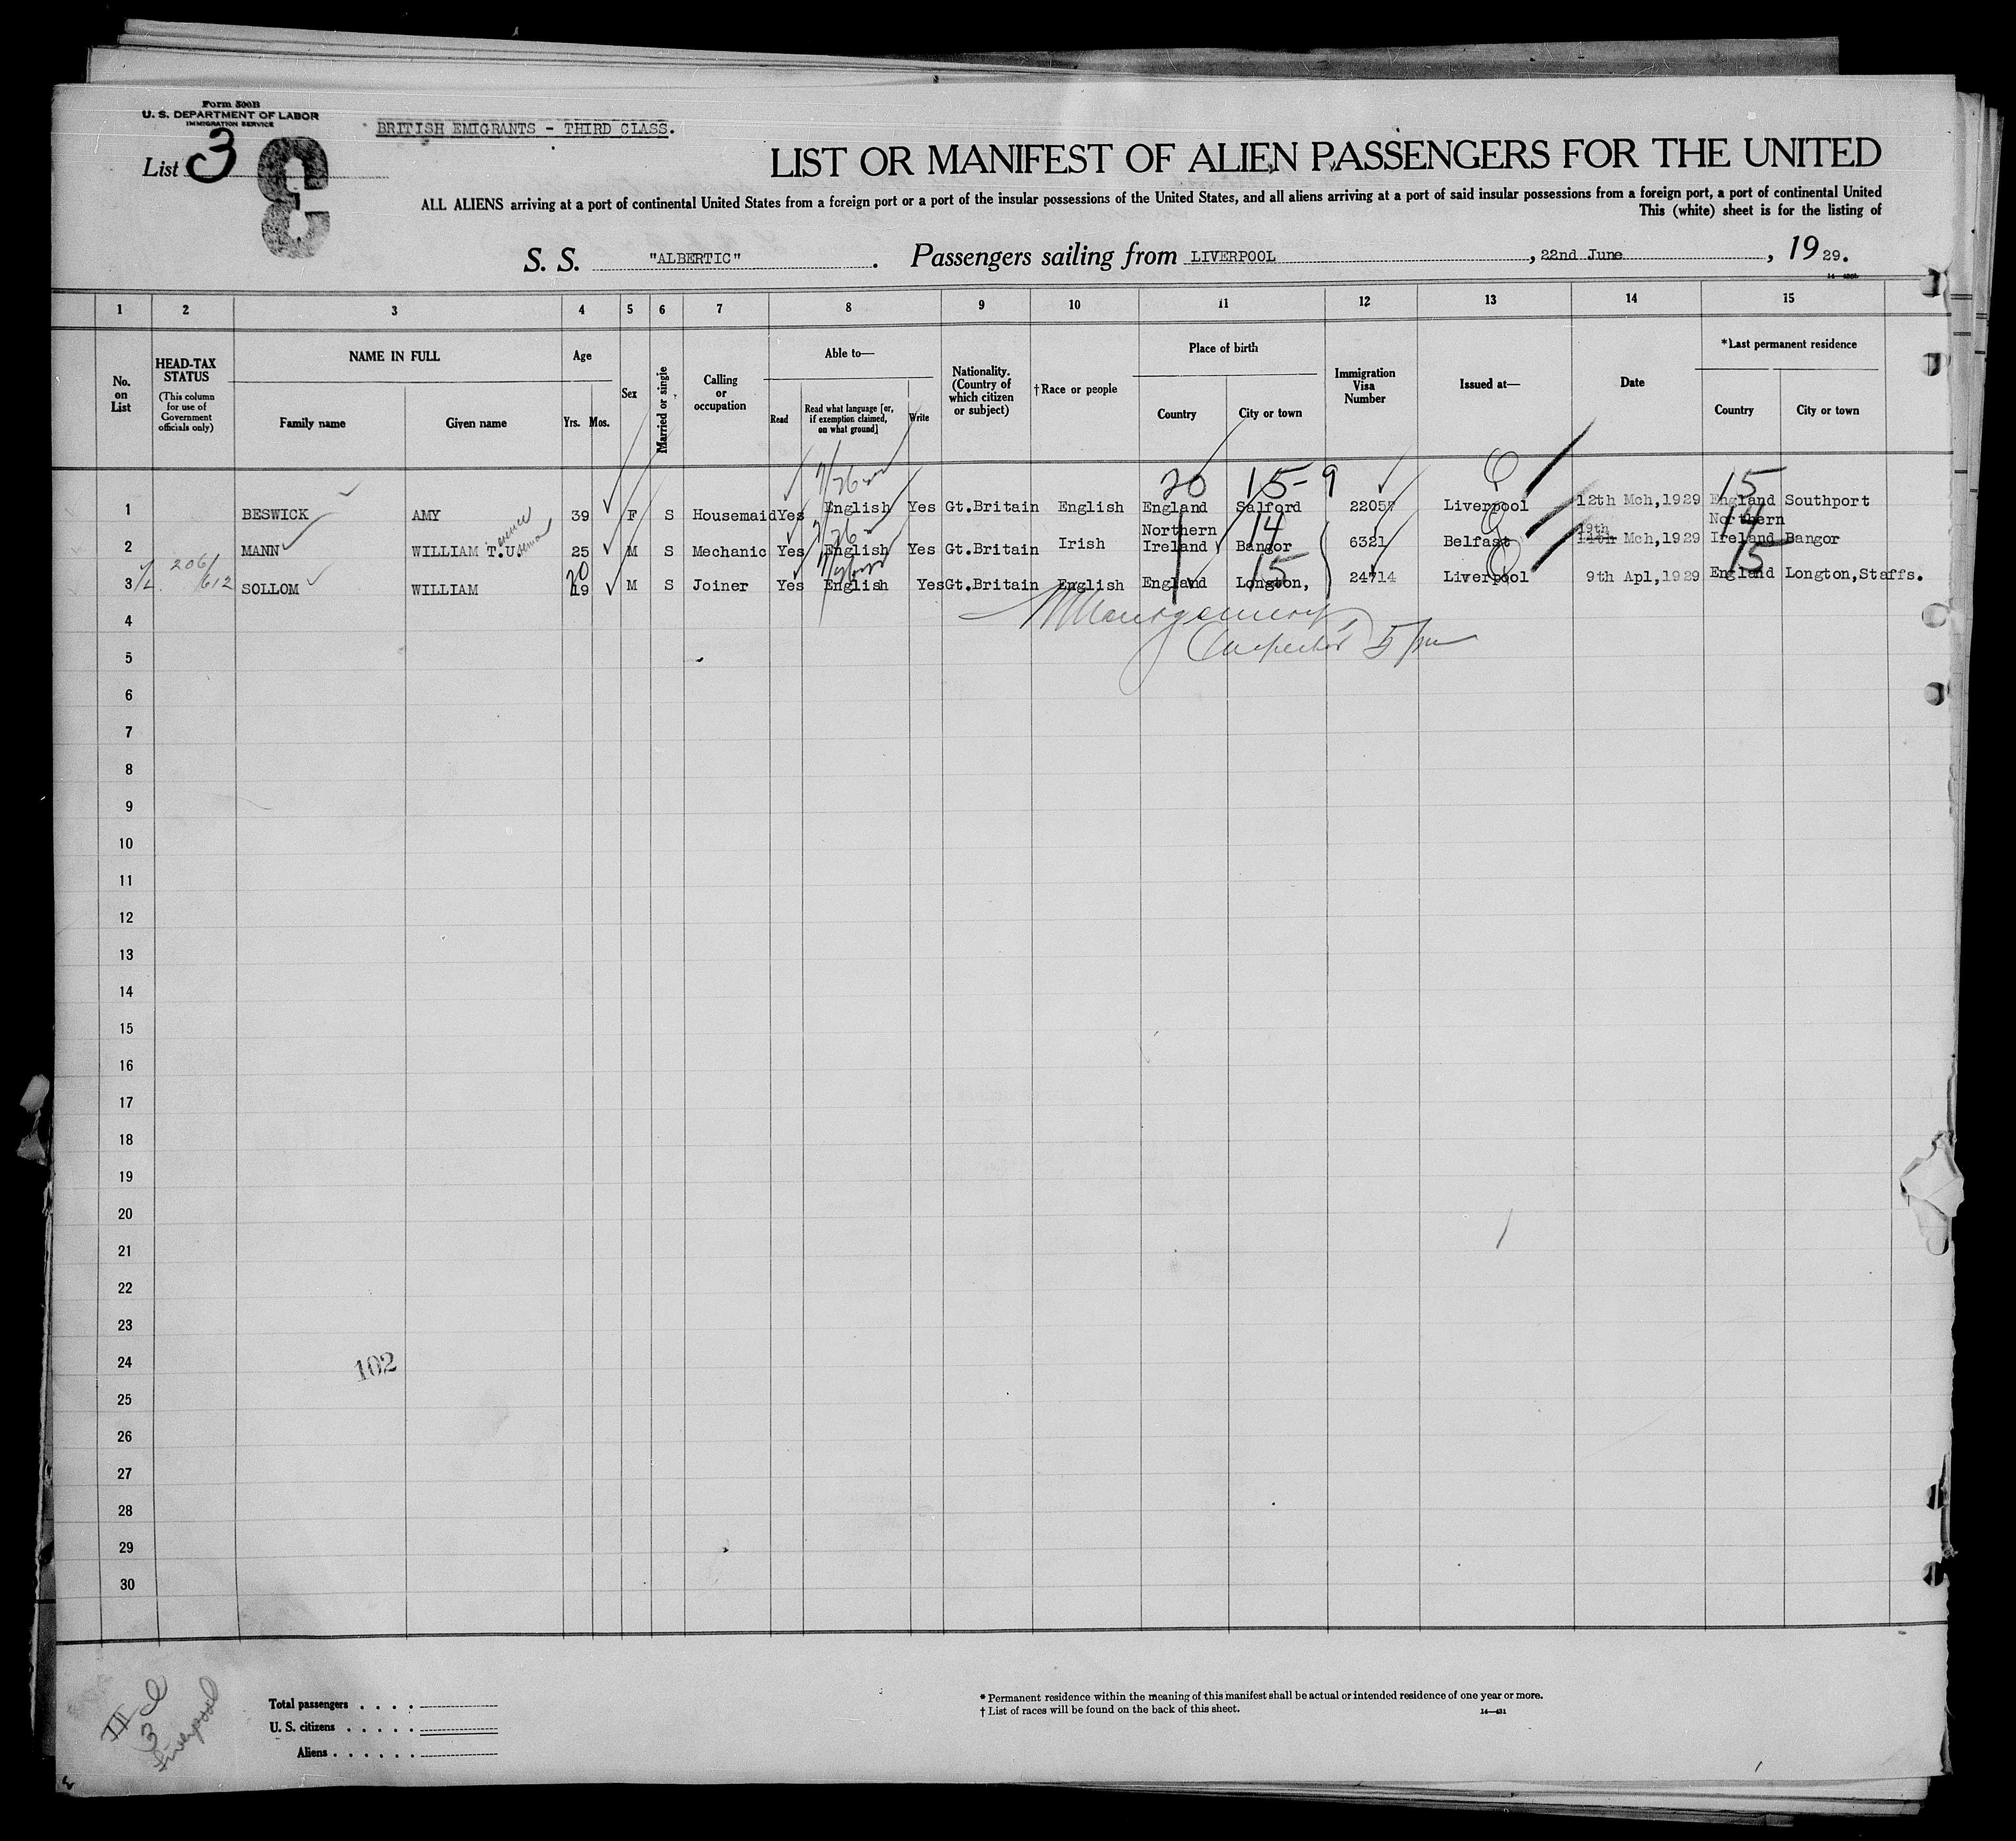 Form 500B
U. S. DEPARTMENT OF LABOR
IMMIGRATION SERVICE
BRITISH EMIGRANTS - THIRD CLASS.
List 3
3
LIST OR MANIFEST OF ALIEN PASSENGERS FOR THE UNITED
ALL ALIENS arriving at a port of continental United States from a foreign port or a port of the insular possessions of the United States, and all aliens arriving at a port of said insular possessions from a foreign port, a port of continental United
This (white) sheet is for the listing of
S. S. "ALBERTIC". Passengers sailing from LIVERPOOL, 22nd June, 1929.
1 2 3 4 5 6 7 8 9 10 11 12 13 14 15
No. on List
HEAD-TAX STATUS (This column for use of Government officials only)
NAME IN FULL
Family name
Given name
Age
Yrs. Mos.
Sex
Married or single
Calling or occupation
Able to—
Read
Read what language [or, if exemption claimed, on what ground]
Write
Nationality. (Country of which citizen or subject)
†Race or people
Place of birth
Country
City or town
Immigration Visa Number
Issued at—
Date
*Last permanent residence
Country
City or town
20 15-9 15
1 BESWICK AMY 39 F S Housemaid Yes English Yes Gt.Britain English England Salford 22057 Liverpool 12th Mch,1929 England Southport
14 14
2 MANN WILLIAM T.U. 25 M S Mechanic Yes English Yes Gt.Britain Irish Northern Ireland Bangor 6321 Belfast 19th 14th Mch,1929 Northern Ireland Bangor
206/612 20 15 15
3 SOLLOM WILLIAM 19 M S Joiner Yes English Yes Gt.Britain English England Longton, 24714 Liverpool 9th Apl,1929 England Longton,Staffs.
4
Inspector
5
6
7
8
9
10
11
12
13
14
15
16
17
18
19
20
21
22
23
24 102
25
26
27
28
29
30
3
Liverpool
Total passengers
U. S. citizens
Aliens
* Permanent residence within the meaning of this manifest shall be actual or intended residence of one year or more.
† List of races will be found on the back of this sheet.
14—431